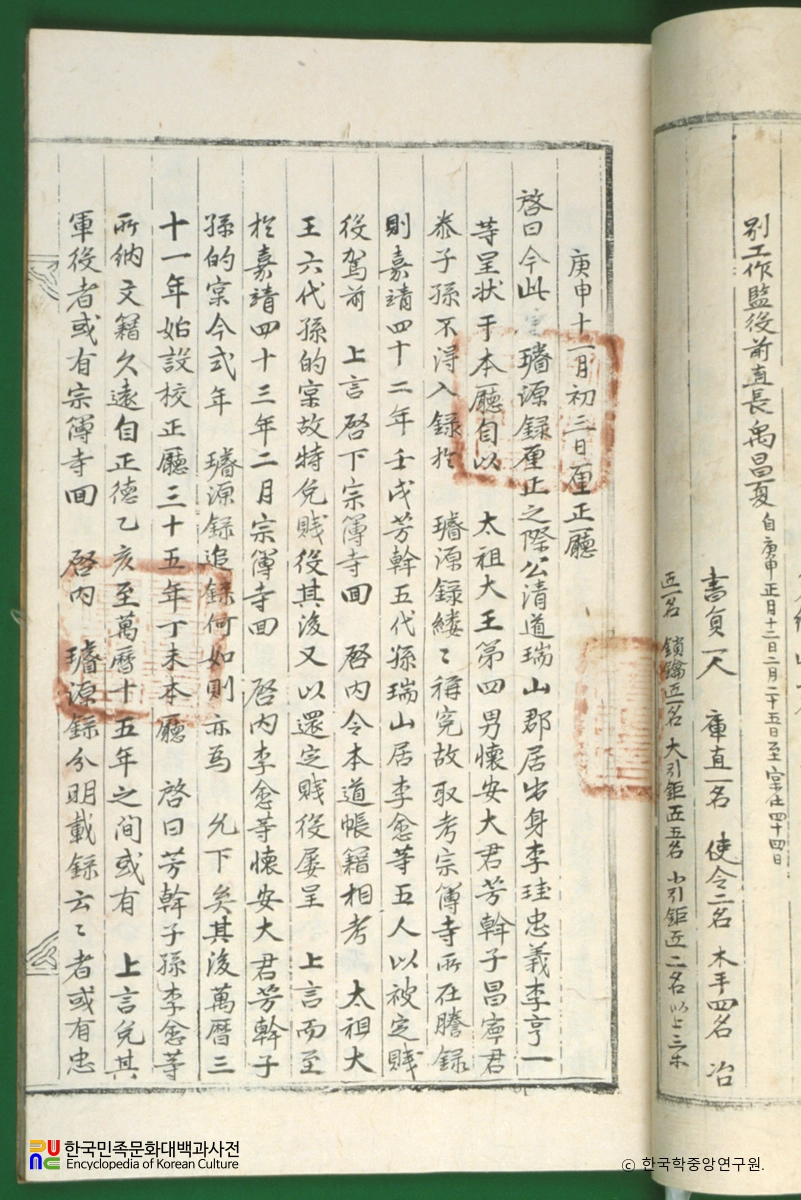 別工作監役前直長禹昌夏 自庚申正月十二日二月二十五日至
書員一人 庫直一名 使令二名 木手四名 冶
匠一名 鎖鑰匠一名 大引鉅匠五名 小引鉅匠二名 以上三朱
庚申十一月初三日厘正廳
啓曰今此 璿源錄厘正之際公清道瑞山郡居出身李珪忠義李亨一
等呈狀于本廳自以 太祖大王第四男懷安大君芳幹子昌寧君
恭子孫不得入錄於 璿源錄縷〻稱冤故取考宗簿寺所在謄錄
則嘉靖四十二年壬戌芳幹五代孫瑞山居李悆等五人以被定賤
役駕前 上言啓下宗簿寺回 啓內令本道帳籍相考 太祖大
王六代孫的實故特免賤役其後又以還定賤役屢呈 上言而至
於嘉靖四十三年二月宗簿寺回 啓內李悆等懷安大君芳幹子
孫的實今式年 璿源錄追錄何如則亦爲 允下矣其後萬曆三
十一年始設校正廳三十五年丁未本廳 啓曰芳幹子孫李悆等
所納文籍久遠自正德乙亥至萬曆十五年之間或有 上言免其
軍役者或有宗簿寺回 啓內 璿源錄分明載錄云〻者或有忠
한국민족문화대백과사전
Encyclopedia of Korean Culture
© 한국학중앙연구원.